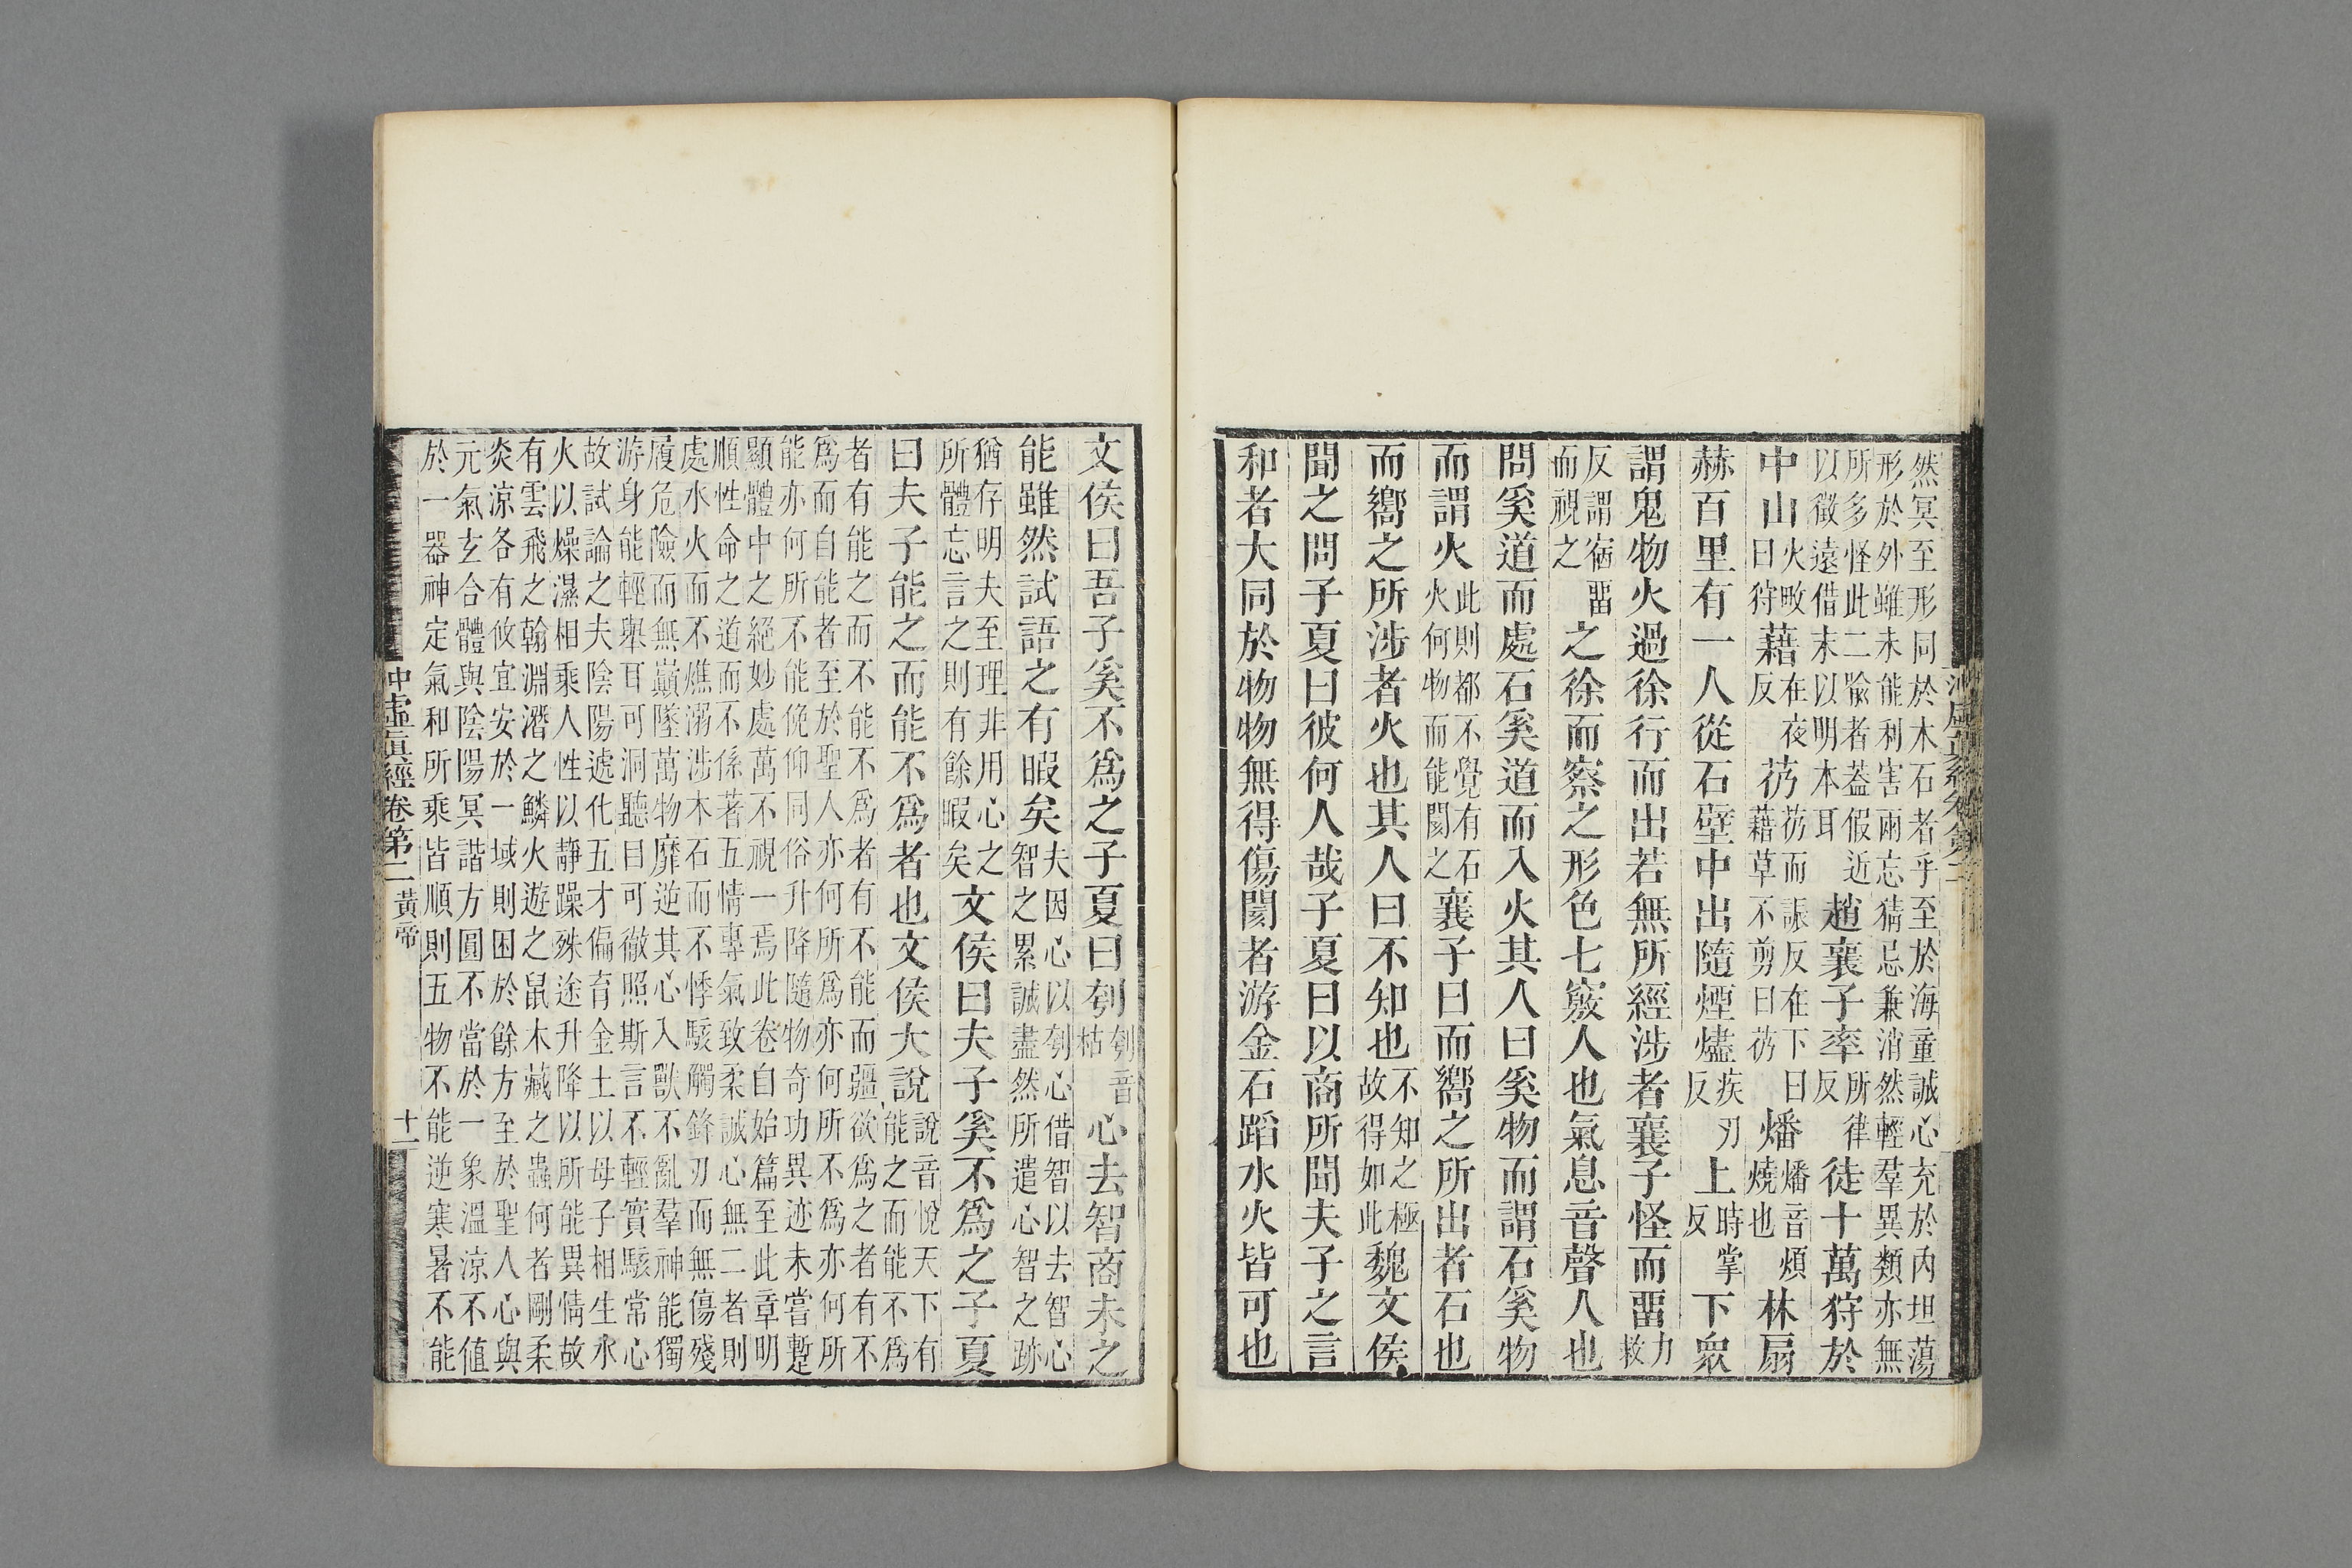 然冥至形同於木石者乎至於海童誠心充於内坦蕩
形於外雖未能利害兩忘猜忌兼消然輕羣異類亦無
所多怪此二喻者葢假近以徵遠借末以明本耳趙襄子率所律反徒十萬狩於
中山火畋曰狩藉在夜反芿芿而誫反在下曰藉草不剪曰芿燔燔音煩燒也林扇
赫百里有一人從石壁中出隨煙燼疾刃反上時掌反下衆
謂鬼物火過徐行而出若無所經涉者襄子怪而畱力救
反謂宿畱而視之之徐而察之形色七竅人也氣息音聲人也
問奚道而處石奚道而入火其人曰奚物而謂石奚物
而謂火此則都不覺有石火何物而能閡之襄子曰而嚮之所出者石也
而嚮之所涉者火也其人曰不知也不知之極故得如此魏文侯
聞之問子夏曰彼何人哉子夏曰以商所聞夫子之言
和者大同於物物無得傷閡者游金石蹈水火皆可也
文侯曰吾子奚不爲之子夏曰刳刳音枯心去智商未之
能雖然試語之有暇矣夫因心以刳心借智以去智心智之累誠盡然所遣心智之跡
猶存明夫至理非用心之所體忘言之則有餘暇矣文侯曰夫子奚不爲之子夏
曰夫子能之而能不爲者也文侯大說說音悅天下有能之而能不爲
者有能之而不能不爲者有不能而彊欲爲之者有不
爲而自能者至於聖人亦何所爲亦何所不爲亦何所
能亦何所不能俛仰同俗升降隨物奇功異迹未嘗蹔
顯體中之絕妙處萬不視一焉此卷自始篇至此章明
順性命之道而不係著五情專氣致柔誠心無二者則
處水火而不燋溺涉木石而不悸駭觸鋒刃而無傷殘
履危險而無巔墜萬物靡逆其心入獸不亂羣神能獨
游身能輕舉耳可洞聽目可徹照斯言不輕實駭常心
故試論之夫陰陽遞化五才偏育金土以母子相生水
火以燥濕相乘人性以靜躁殊途升降以所能異情故
有雲飛之翰淵潛之鱗火遊之鼠木藏之蟲何者剛柔
炎涼各有攸宜安於一域則困於餘方至於聖人心與
元氣玄合體與陰陽冥諧方圓不當於一象溫涼不值
於一器神定氣和所乘皆順則五物不能逆寒暑不能
冲虛眞經卷第二 黃帝 十一